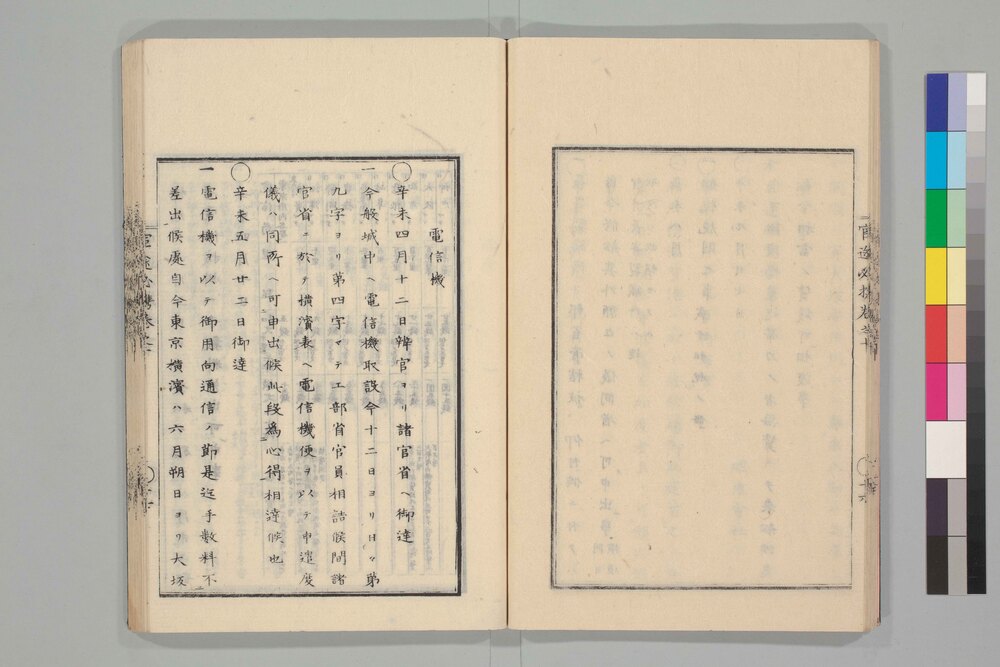 電信機
○辛未四月十二日辨官ヨリ諸官省ヘ御達
一今般城中ヘ電信機取設今十二日ヨリ日々第
九字ヨリ第四字マテ工部省官員相詰候間諸
官省ニ於テ横濱表ヘ電信機便ヲ以テ申遣度
儀ハ同所ヘ可申出候此段為心得相達候也
○辛未五月廿二日御達
一電信機ヲ以テ御用向通信ノ節是迄手數料不
差出候處自今東京横濱ハ六月朔日ヨリ大坂
官途必携巻之十